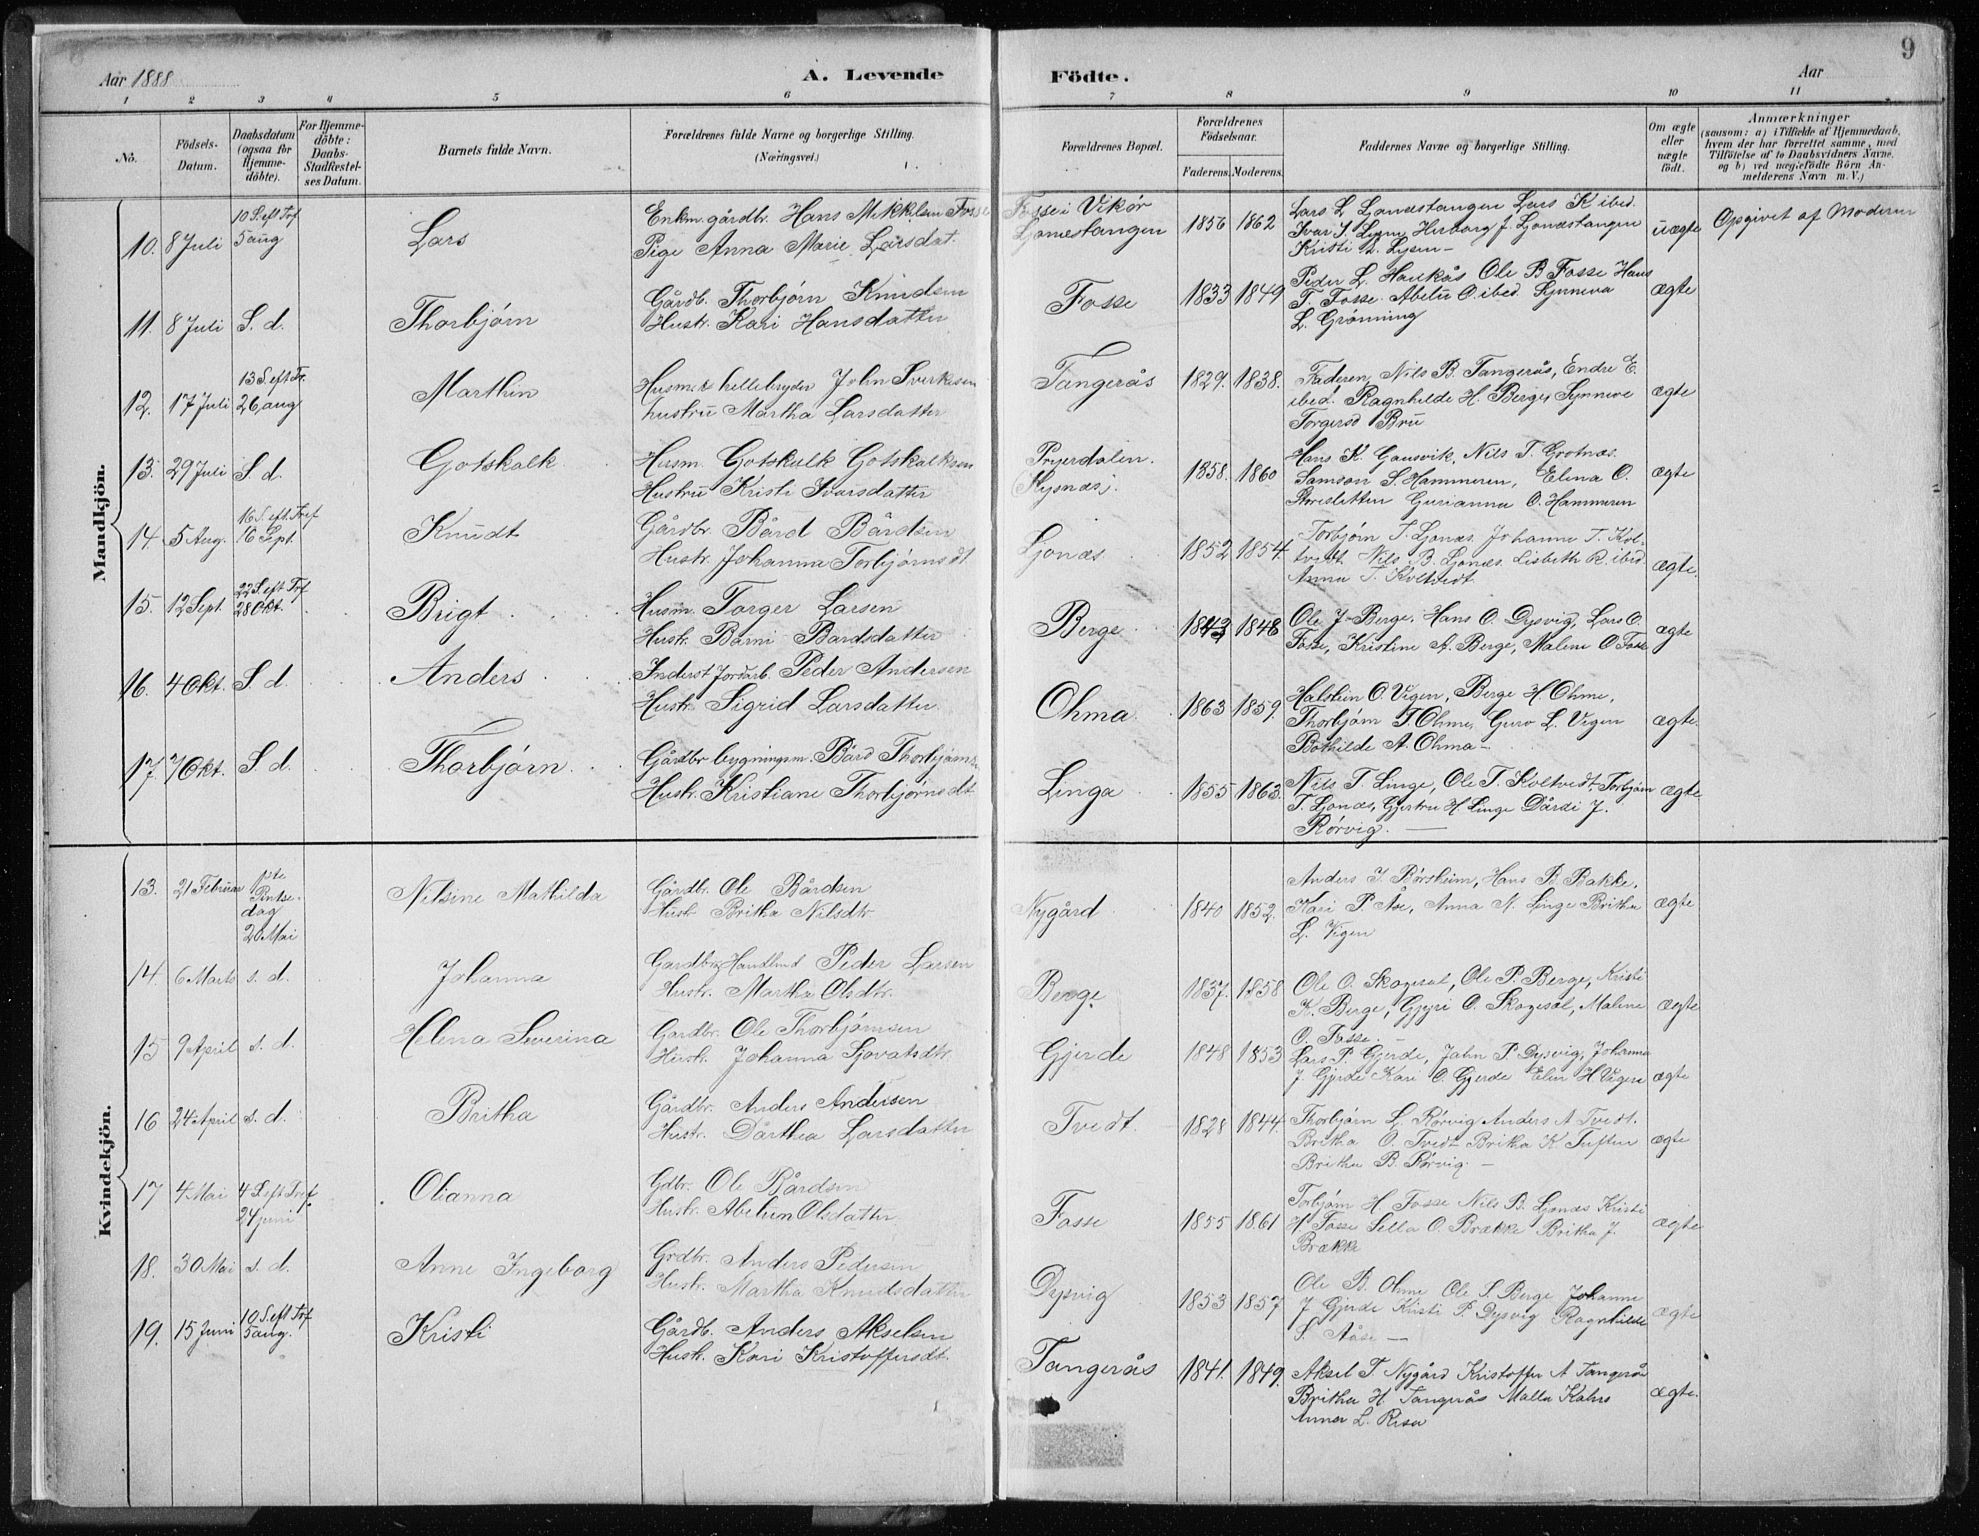 9
Aar 1888
A. Levende
Födte.
Aar
1 2 3 4 5 6 7 8 9 10 11
No.
Födsels-Datum.
Daabsdatum (ogsaa for Hjemme-döbte).
For Hjemme-döbte: Daabs-Stadfestel-ses Datum.
Barnets fulde Navn.
Forældrenes fulde Navne og borgerlige Stilling.
(Næringsvei.)
Forældrenes Bopæl.
Forældrenes Födselsaar.
Faderens. Moderens.
Faddernes Navne og borgerlige Stilling.
Om ægte eller uægte födt.
Anmærkninger
(saasom: a) i Tilfælde af Hjemmedaab, hvem der har forrettet samme, med Tilföielse af to Daabsvidners Navne, og b) ved uægtefödte Börn An-melderens Navn m. V.)
Mandkjön.
10. 8 Juli 10 S. eft Tref 5 aug Lars
Enkm. gårdbr. Hans Mikkelsen Fosse
Pige Anna Marie Larsdat.
Fosse i Vikör
Ljonestangen 1856 1862
Lars L Ljonestangen Lars K ibid.
Ivar S. Herborg J. Ljonestangen
Kristi
uægte Opgivet af Moderen
11. 8 Juli S. d. Thorbjørn
Gårdb. Thorbjørn Knudsen
Hustr. Kari Hansdatter
Fosse 1833 1849
Peder L. Haukås Ole B Fosse Hans
T. Fosse. Abelu O. ibed. Synneva
L. Grønning
ægte
12. 17 Juli 13 S. eft Tr. 26 aug Marthin
Husm. & hellebryder John Sverkesen
hustru Martha Larsdatter
Tangerås 1829. 1838.
Faderen, Nils B. Tangerås, Endre E.
ibed. Ragnhilde H. Berge, Synneve
Torgersd Bru
ægte
13. 29 Juli S. d. Gotskalk
Husm. Gotskalk Gotskalksen
Hustru Kristi Ivarsdatter
1858. 1860
Hans K. Gausvik, Nils T. Grotnæs.
Samson S Hammeren, Elena O.
Gurianna O. Hammeren
ægte
14. 5 Aug. 16 S. eft. Tref 16 Sept. Knudt
Gårdbr. Bård Bårdsen
Hustr. Johanna Torbjørnsdt
Ljonæs 1852 1854.
Torbjørn T. Ljonæs. Johanne T. Kol-
tvedt. Nils B. Ljonæs. Lisbeth R. ibid.
Anna T. Koltvedt.
ægte.
15. 12 Sept. 22 S. eft Tref 28 Okt. Brigt
Husm. Torger Larsen
Hustr. Barni Bardsdatter
Berge 1843 1848
Ole J. Berge. Hans O. Dysvig. Lars O.
Fosse, Kristine A. Berge, Malene O Fosse
ægte
16. 4 Okt. S. d. Anders
Inderst Jordarb. Peder Andersen
Hustr. Sigrid Larsdatter
Ohma 1863 1859.
Halstein O. Vigen, Berge H Ohme,
Thorbjørn T. Ohme, Guro L. Vigen
Bothilde A. Ohma –
ægte
17. 7 Okt. S. d. Thorbjørn
Gårdbr bygningsm. Bård Thorbjørns.
Hustr. Kristiane Thorbjørnsdt
Linga 1855 1863.
Nils T. Linge, Ole T. Koltvedt Torbjørn
T. Ljonæs, Gjertru H. Linge Dårdi J.
Rørvig. –
ægte
Kvindekjön.
13. 21 Februar 1ste Pintse-dag 20 Mai Nilsine Mathilda
Gårdbr. Ole Bårdsen
Hustr. Britha Nilsdtr.
Nygård 1840 1852.
Anders J. Børsheim, Hans B. Bakke.
Kari P. Åse, Anna N. Linge Britha
L. Vigen
ægte
14. 6 Marts s. d. Johanna
Gardbr. Handlend Peder Larsen
Hustr. Martha Olsdtr.
Berge 1837. 1858
Ole O. Skogesal, Ole P. Berge, Kristi
K. Berge, Gjyri O. Skogesal, Malene
O. Fosse. –
ægte
15 9 April s. d. Helena Severina
Gardbr. Ole Thorbjørnsen
Hustr. Johanna Sjovatsdtr.
Gjerde 1848 1853
Lars P. Gjerde, John P. Dysvig, Johanna
J. Gjerde Kari O. Gjerde Elen H Vigen
ægte
16 24 April s. d. Britha
Gårdbr. Anders Andersen
Hustr. Dårthea Larsdatter
Tvedt. 1828 1844.
Thorbjørn L. Rørvig Anders A Tvedt.
Britha O. Tvedt Britha K Tuften
Britha B. Rørvig. –
ægte
17 4 Mai 4 S. eft Tref. 24 juni Olianna
Gdbr. Ole Bårdsen
Hustr. Abelun Olsdatter
Fosse 1855 1861
Torbjørn H Fosse Nils B. Ljonæs Kristi
H. Fosse Sella O. Brække Britha J.
Brække
ægte
18. 30 Mai s. d. Anne Ingeborg
Grdbr. Anders Pedersen
Hustr. Martha Knudsdatter
Dysvig 1853 1857.
Ole B. Ohme Ole S. Berge Johanne
J Gjerde Kristi P. Dysvig Ragnhilde
S. Aase –
ægte
19. 15 Juni 10 S. eft Tref 5 aug. Kristi
Gårdb. Anders Akselsen
Hustr. Kari Kristoffersdt.
Tangerås 1841. 1849.
Aksel T. Nygård Kristoffer A Tangerås
Britha H Tangerås Malla Kahrs
Anna L. Risa
ægte.